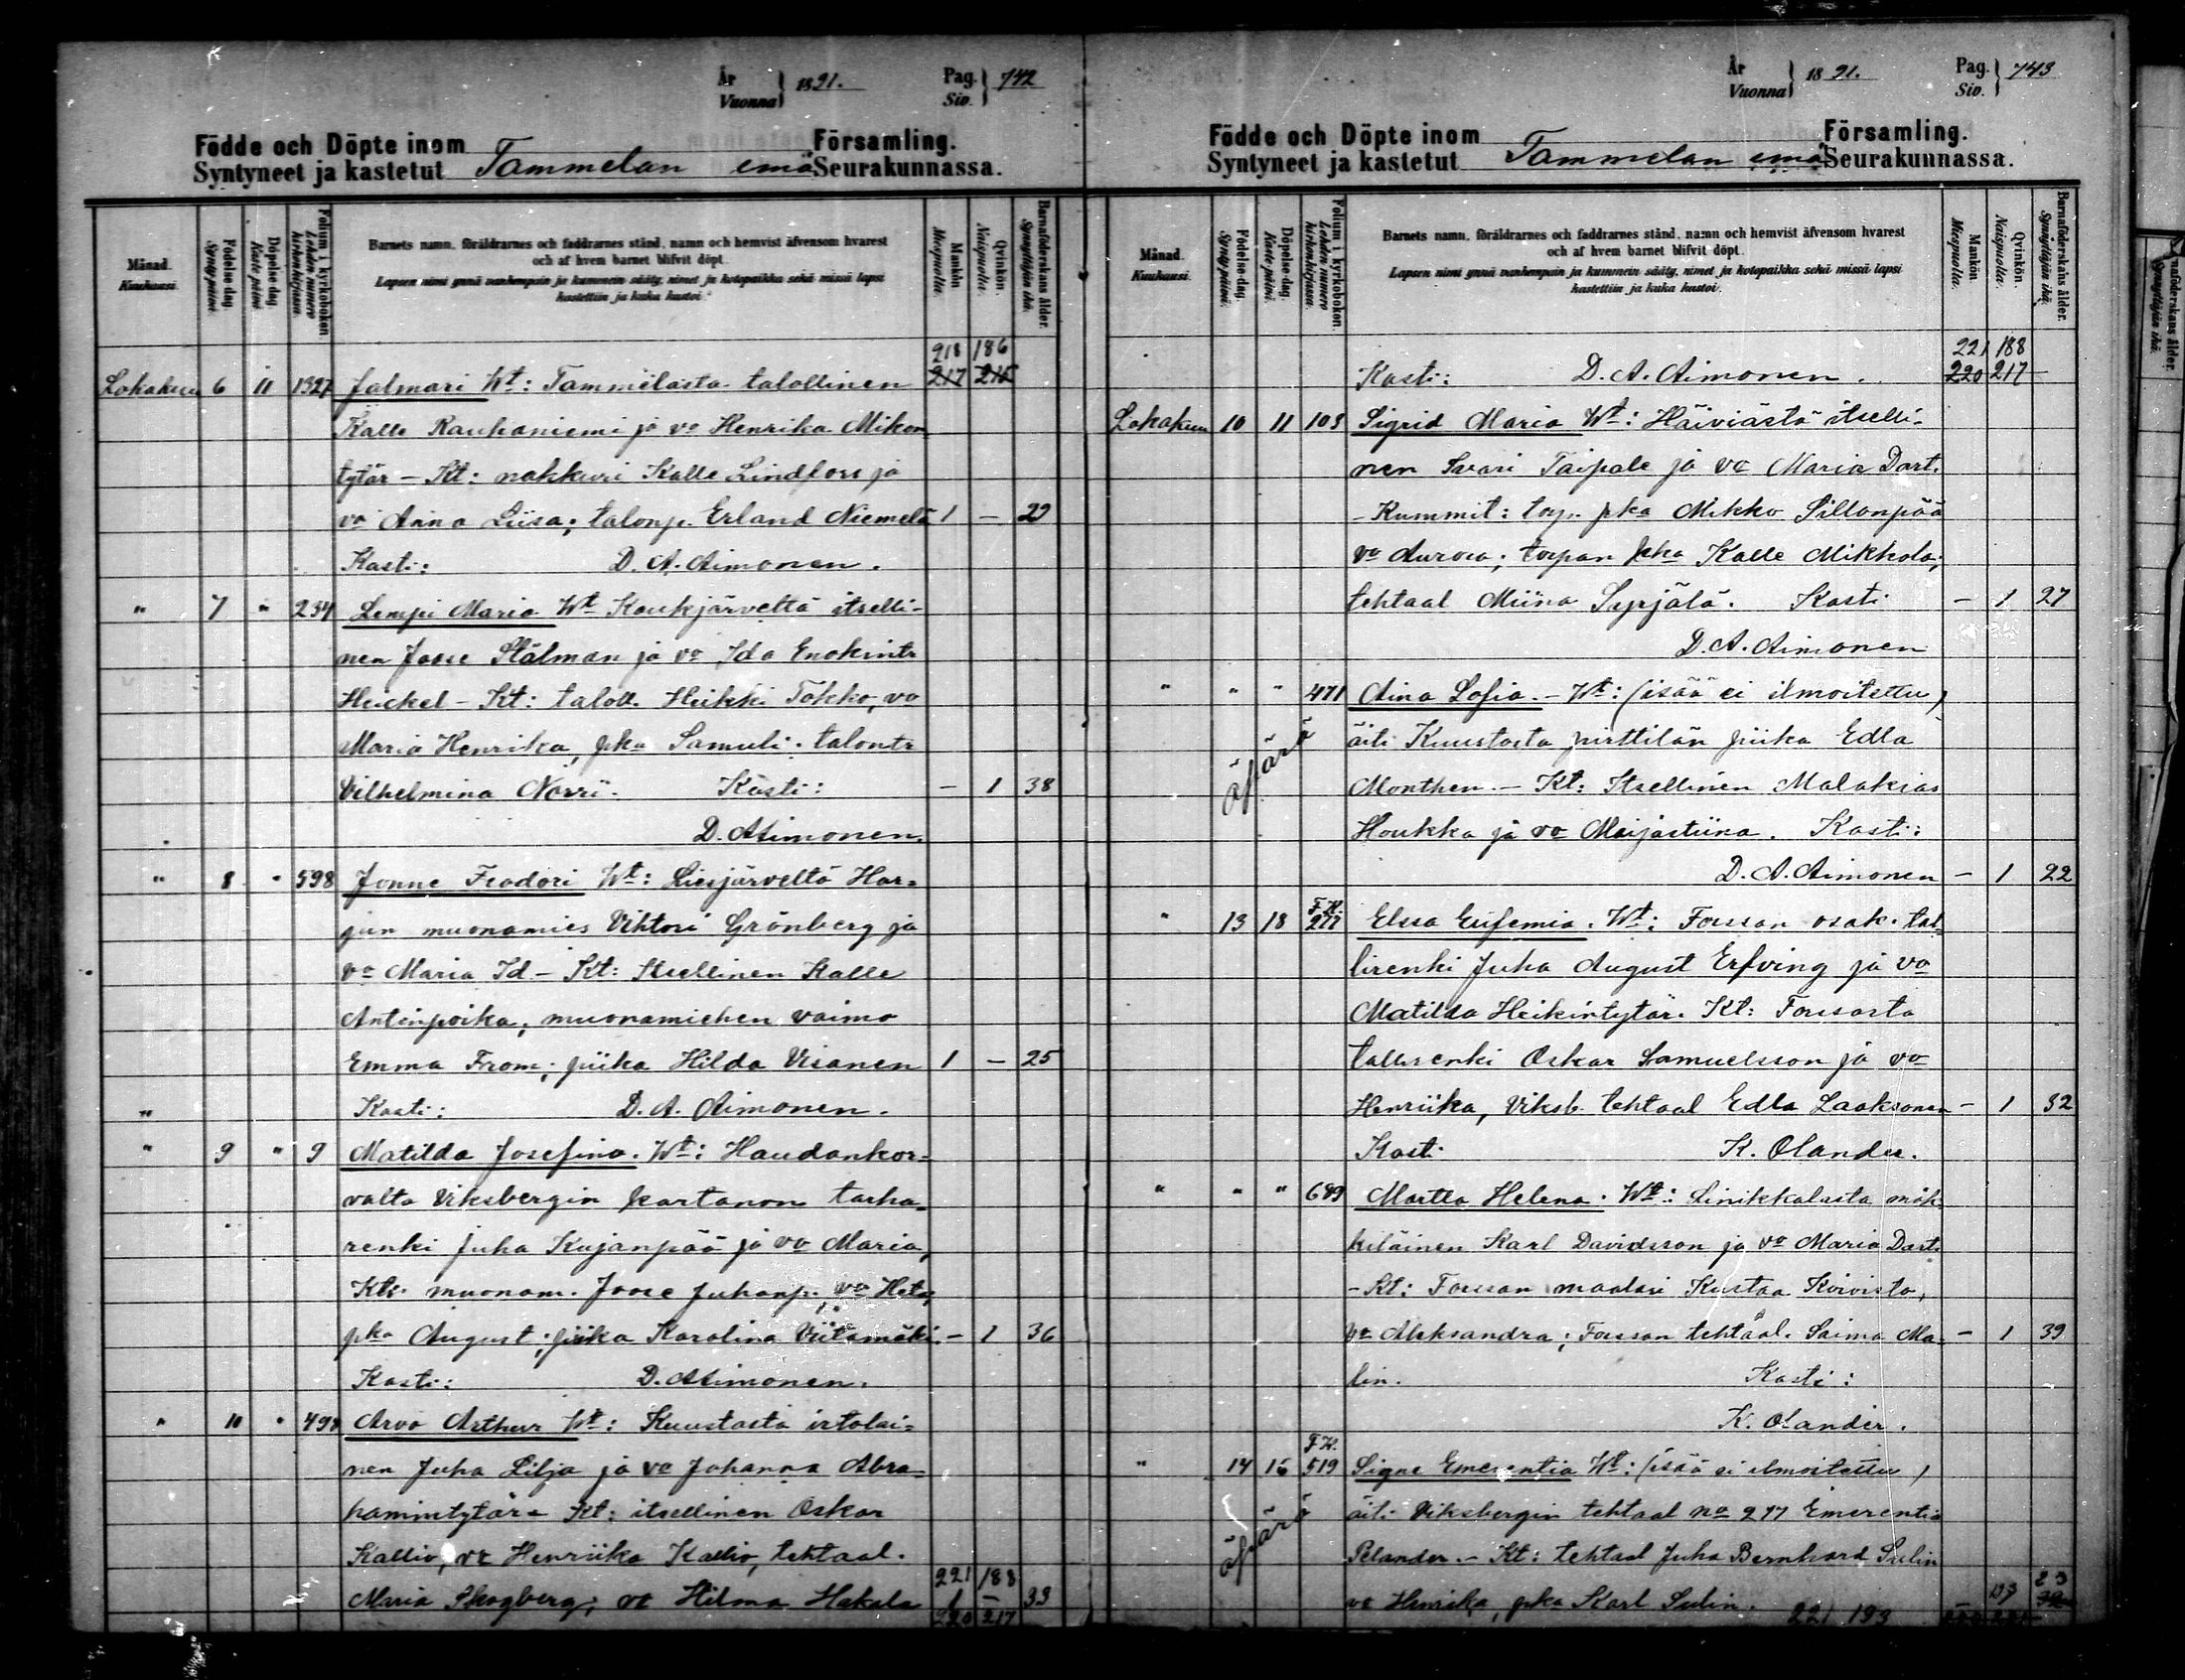 År
Vuonna } 1891.
Pag.
Siv. } 742
Födde och Döpte inom
Syntyneet ja kastetut Tammelan emä
Församling.
Seurakunnassa.
Månad. Kuukausi.
Födelse dag. Syntypäivä.
Döpelse dag. Kaste päivä.
Folium i kyrkoboken. Lehden numero kirkonkirjassa.
Barnets namn, föräldrarnes och faddrarnes stånd, namn och hemvist äfvensom hvarest
och af hvem barnet blifvit döpt.
Lapsen nimi ynnä vanhempain ja kummein sääty, nimet ja kotopaikka sekä missä lapsi
kastettiin ja kuka kastoi.
Mankön. Miespuolia.
Qvinkön. Naispuolia.
Barnaföderskans ålder. Synnyttäjän ikä.
218 186
Lokakuu 6 11 1327 Jalmari Wt: Tammelasta talollinen 217 215
Kalle Rauhaniemi ja vo Henrika Mikon
tytär - Kt: nahkuri Kalle Lindfors ja
vo Anna Liisa; talonp. Erland Niemelä 1 - 29
Kasti: D. A. Aimonen.
" 7 " 234 Lempi Maria Wt Kaukjärveltä itselli-
nen Josse Stålman ja vo Ida Enokintr
Heickel - Kt: taloll. Heikki Tokko, vo
Maria Henrika, pka Samuli; talontr
Vilhelmina Norri. Kasti: - 1 38
D. A Aimonen.
" 8 " 598 Jonne Feodori Wt: Liesjärveltä Har-
jun muonamies Vihtori Grönberg ja
vo Maria Id - Kt: Itsellinen Kalle
Antinpoika; muonamiehen vaimo
Emma From; piika Hilda Visanen 1 - 25
" Kasti: D. A. Aimonen.
" 9 " 9 Matilda Josefina. Wt: Haudankor-
valta Viksbergin kartanon tarha-
renki Juha Kujanpää ja vo Maria,
Kt: muonam. Joose Juhanp. vo Heta,
pka August; piika Karolina Viitamäki. - 1 36
Kasti: D. A Aimonen.
" 10 " 498 Arvo Arthur Wt: Kuustosta irtolai-
nen Juha Lilja ja vo Johanna Abra-
hamintytär - Kt: itsellinen Oskar
Kallio, vo Henriika Kallio, tehtaal.
221 188
Maria Skogberg; vo Hilma Hakala 1 - 33
220 217
År
Vuonna } 1891.
Pag.
Siv. } 743
Födde och Döpte inom
Syntyneet ja kastetut Tammelan emä
Församling.
Seurakunnassa.
Månad. Kuukausi.
Födelse dag. Syntypäivä.
Döpelse dag. Kaste päivä.
Folium i kyrkoboken. Lehden numero kirkonkirjassa.
Barnets namn, föräldrarnes och faddrarnes stånd, namn och hemvist äfvensom hvarest
och af hvem barnet blifvit döpt.
Lapsen nimi ynnä vanhempain ja kummein sääty, nimet ja kotopaikka sekä missä lapsi
kastettiin ja kuka kastoi.
Mankön. Miespuolia.
Qvinkön. Naispuolia.
Barnaföderskans ålder. Synnyttäjän ikä.
221 188
Kasti: D. A. Aimonen. 220 217 -
Lokakuu 10 11 103 Sigrid Maria Wt: Häiviästä itselli-
nen Savari Taipale ja vo Maria Dart.
- Kummit: torp. pka Mikko Sillanpää
vo Aurora; torpan pka Kalle Mikkola;
tehtaal Miina Syrjälä. Kasti - 1 27
D. A. Aimonen
" " " 471 Aina Sofia. - Wt: (isää ei ilmoitettu)
äpärä äiti Kuustosta pirttilän piika Edla
Monthen. - Kt: Itsellinen Malakias
Houkka ja vo Maijastiina. Kasti:
D. A. Aimonen - 1 22
" 13 18 F.K. 277 Elssa Eufemia. Wt: Forssan osak. tal-
lirenki Juha August Erfving ja vo
Matilda Heikintytär. Kt: Forssasta
tallirenki Oskar Samuelsson ja vo
Henriika, Viksb. tehtaal Edla Laaksonen - 1 32
Kasti K. Olander.
" " " 689 Martta Helena. Wt: Linikkalasta mök-
kiläinen Karl Davidsson ja vo Maria Dart.
- Kt: Forssan maalari Kustaa Koivisto,
vo Aleksandra; Forssan tehtaal. Saima Ma- - 1 39
lin. Kasti:
K. Olander.
" 14 15 F.K. 519 Signe Emerentia Wt: (isää ei ilmoitettu)
äpärä äiti Viksbergin tehtaal no 277 Emerentia
Pelander. - Kt: tehtaal Juha Bernhard Sulin
vo Henrika, pka Karl Sulin. 221 193